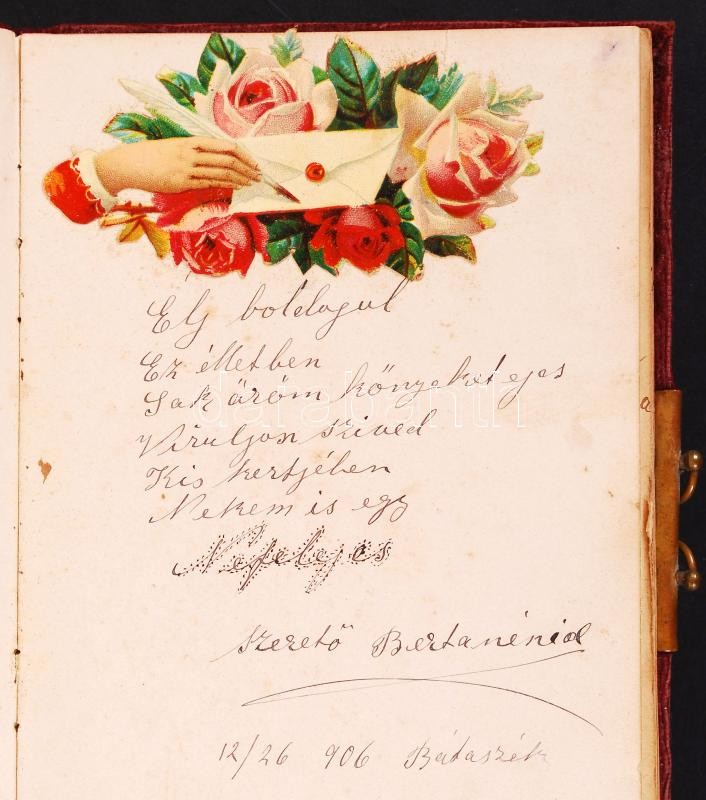 Elj boldogul
Ez élletben
Sak äröm könyeket ejes
Viruljon szived
Kis kertjében
Nekem is egy
Nefelejcs
szerető Bertanénid
12/26 906 Bátaszék
darabanth
a